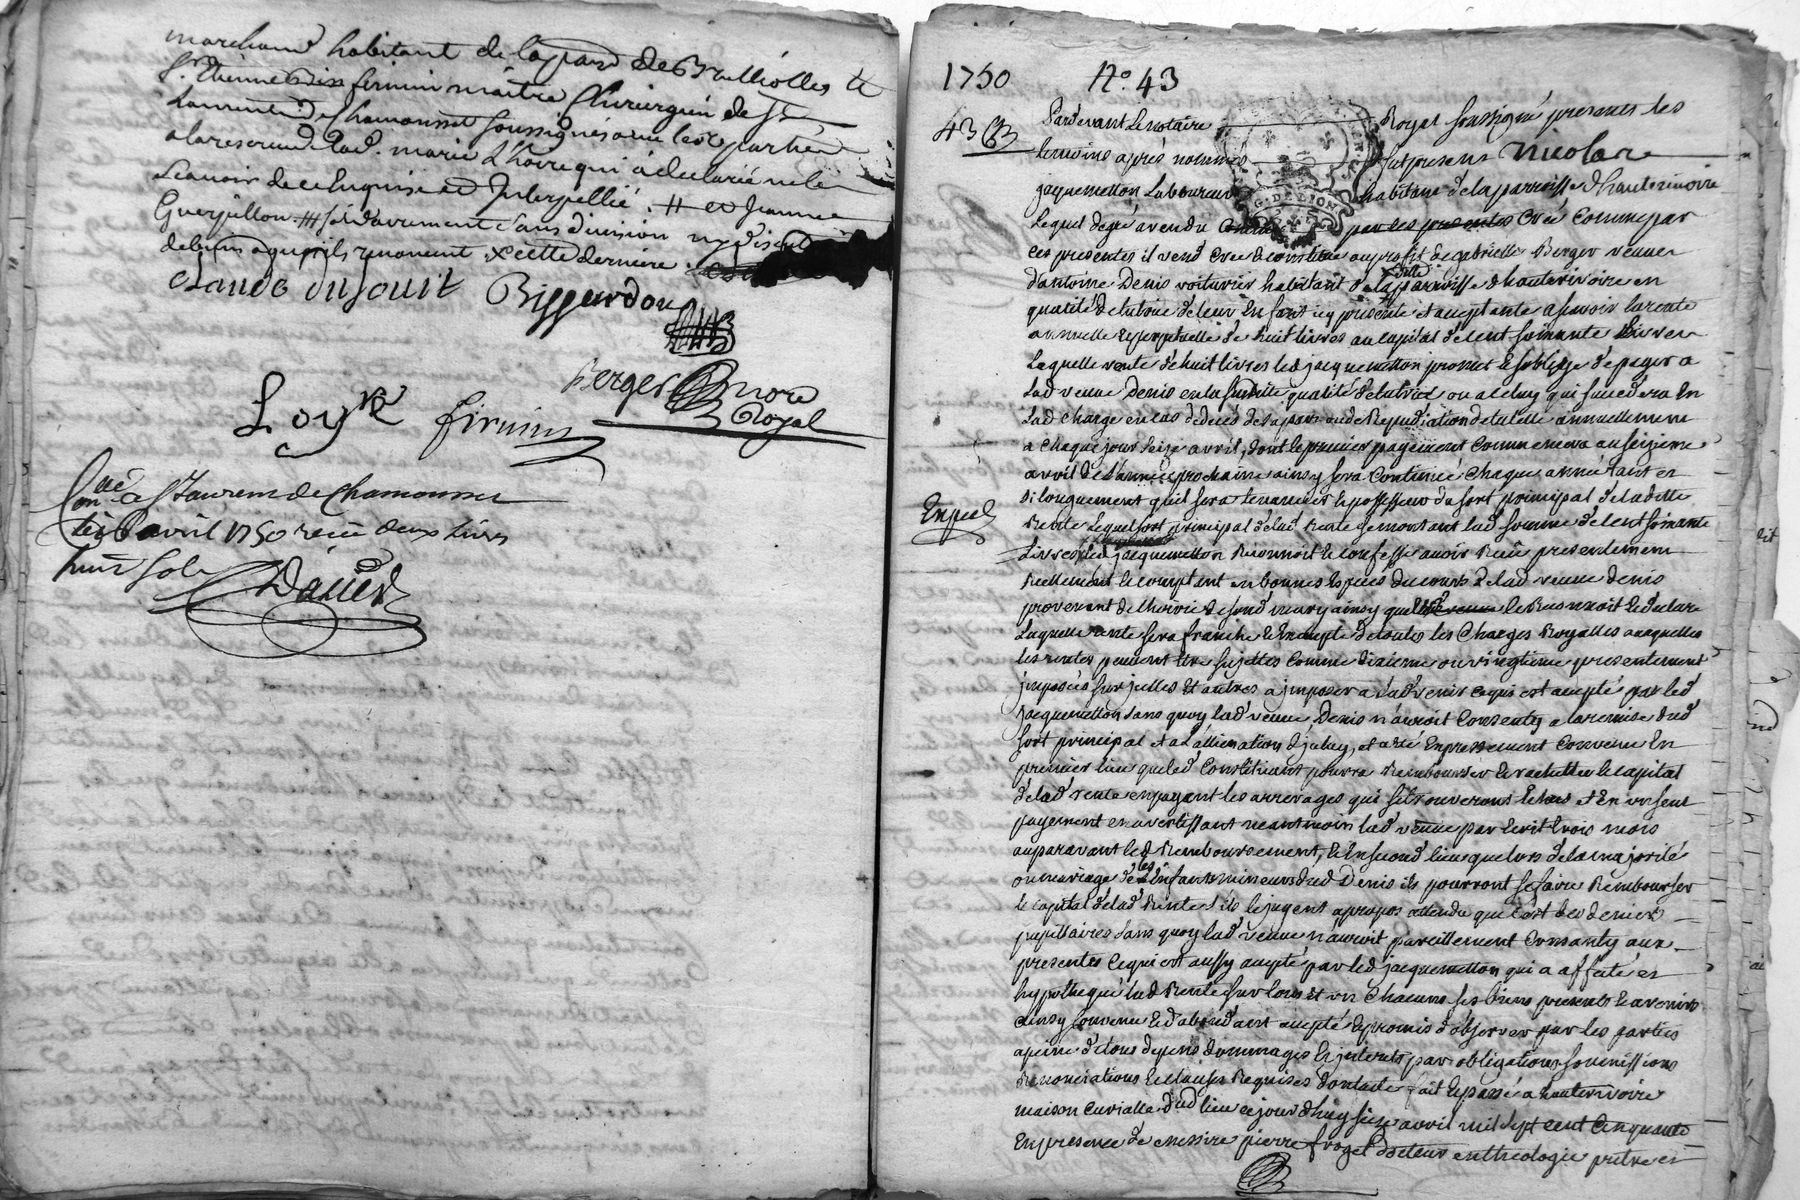 marchand habitant de la parr. de Brulliolles et
Sr. Etienne firmin maitre Chirurgien de St
Laurent de Chamousset soussignés avec lesd. parties
a la reserve de lad. marie qui a declaré ne le
scavoir de ce Enquise et Interpellié. et jeanne
Guerpillon. solidairement sans division ny discution
de biens a quoy ils renoncent. x cette derniere
claude dujoust Bissurdon
Berger nore
Royal
Loy firmin
Conlé a St Laurent de Chamousset
le avril 1750 recu deux livres
huit sols
David
1750 No. 43
43
Pardevant Le notaire Royal soussigné presents les
temoins apres nommés fut present Nicolas
jaquemetton Laboureur habitant de la parroisse d'hauterivoire
Lequel de gré a vendu par les presentes Créé Comme par
ces presentes il vend Crée et constitue au profit de gabrielle Berger veuve
d'antoine Denis voiturier habitant de la parroisse d'hauterivoire en
qualité de tutrice de leur Enfants icy presente et acceptante a scavoir la rente
annuelle et perpetuelle de huit livres au capital de cent soixante livres
Laquelle rente de huit livres led jacquemetton promet et s'oblige de payer a
Lad veuve Denis en la susdite qualité de tutrice ou a celuy qui succedera En
Lad Charge en cas de deces de sa part ou de Repudiation de tutelle annuellement
a Chaque jour seize avril, dont le premier payement Commencera au seizieme
avril de L'année prochaine ainsy sera Continué Chaque année tant et
si longuement qu'il sera tenancier et possesseur du sort principal de ladite
Rente Lequel sort principal de lad Rente se montant lad somme de cent soixante
Livres led jacquemetton Reconnoit et confesse avoir Recu presentement
Reellement et comptant en bonnes Especes du cours de lad veuve Denis
provenant de l'hoirie de soud mary ainsy que le Reconnoit et declare
Laquelle rente sera franche et Exempte de toutes les Charges Royalles auxquelles
les rentes peuvent être sujettes comme dixieme ou vingtieme presentement
jmposées sur jcelles et autres a jmposer a l'advenir ce qui est accepté par led
Jacquemetton sans quoy lad veuve Denis n'auroit Consenty a la remise dud
sort principal et a l'allienation d'jceluy, et a été Expressement Convenu En
premier lieu que led Constituant pourra Rembourser et rachetter le capital
de lad rente en payant les arrerages qui se trouverons lors et En un seul
payement en avertissant neantmoin lad veuve par Ecrit trois mois
auparavant led Remboursement, et En second lieu que lors de la majorité
ou mariage des Enfants mineurs dud Denis ils pourront se faire Rembourser
le capital de lad Rente s'ils le jugent apropos attendu que c'est des deniers
pupillaires sans quoy lad veuve n'auroit pareillement Consanty aux
presentes ce qui est aussy accepté par led jacquemetton qui a affecté et
hypothequé lad Rente sur tous et un Chacuns ses biens presents et avenirs
ainsy Convenu et d'abondant accepté et promis d'observer par les parties
a peine de tous depens dommages et jnterets par obligations soumissions
Renonciations et Clauses Requises dont acte fait et passé a hauterivoire
maison curialle dud lieu ce jour d'huy seize avril mil sept cent Cinquante
En presence de messire pierre froget docteur en theologie pretre et